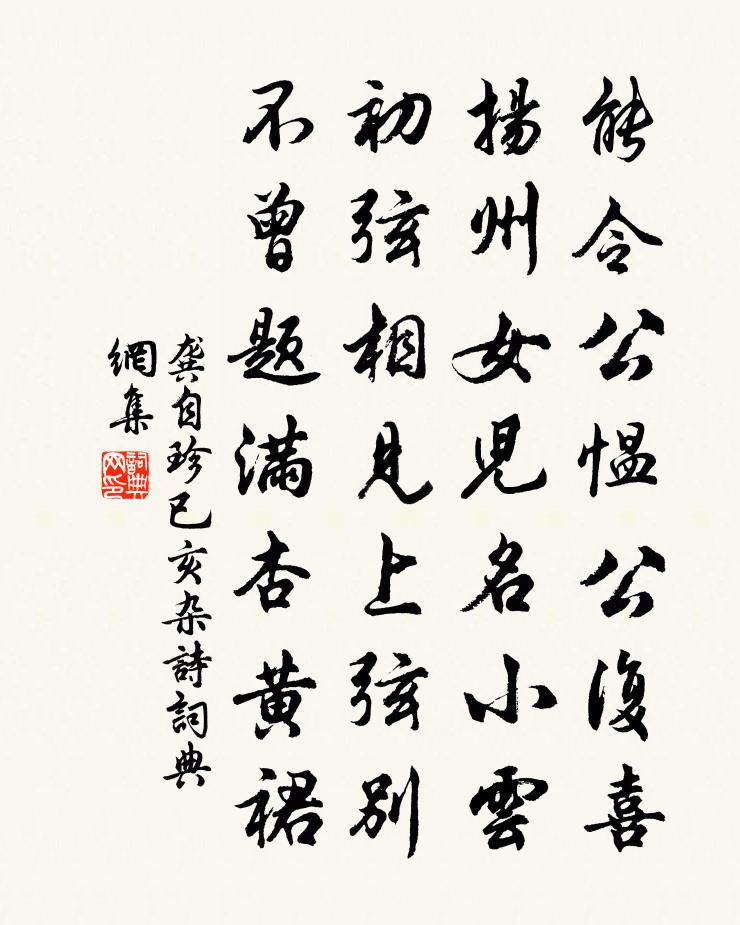 能令公愠公復喜
揚州女児名小雲
初弦相見上弦別
不曾題满杏黄裙
龔自珍己亥杂詩詞典
網集
詞典網印